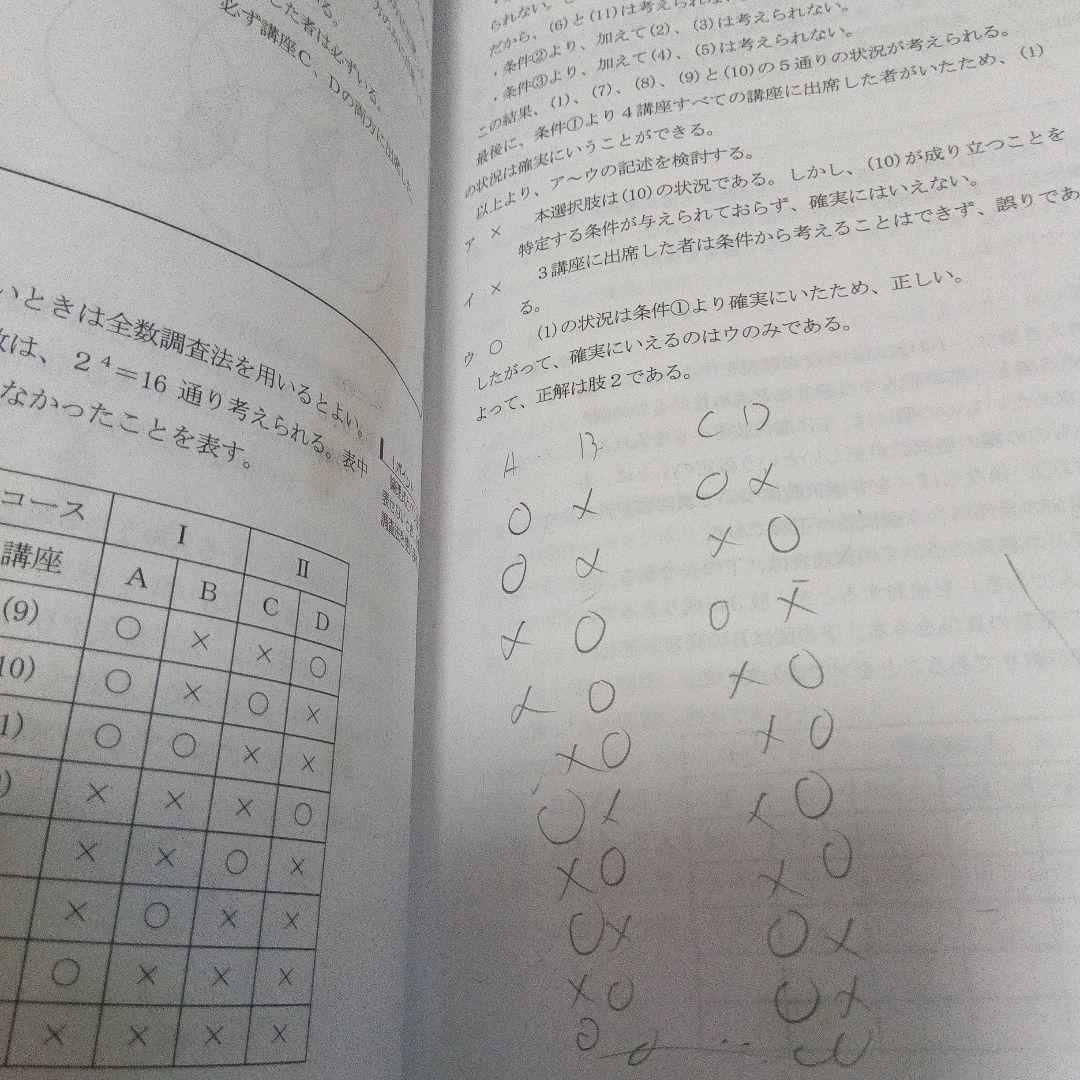 した者は必ずいる。
必ず講座C、Dの両方に出席した
いときは全数調査法を用いるとよい。
数は、2⁴=16 通り考えられる。表中
なかったことを表す。
コース Ⅰ Ⅱ
講座 A B C D
(9) ○ × × ○
10) ○ × ○ ×
1) ○ ○ × ×
) × × × ○
× × ○ ×
× ○ × ×
○ × × ×
× × × ×
られない。
だから、(6)と(11)は考えられな
・条件②より、加えて(2)、(3)は考えられない。
・条件③より、加えて(4)、(5)は考えられない。
この結果、(1)、(7)、(8)、(9)と(10)の5通りの状況が考えられる。
最後に、条件①より4講座すべての講座に出席した者がいたため、(1)
の状況は確実にいうことができる。
以上より、ア〜ウの記述を検討する。
ア × 本選択肢は(10)の状況である。しかし、(10)が成り立つことを
特定する条件が与えられておらず、確実にはいえない。
イ × 3講座に出席した者は条件から考えることはできず、誤りであ
る。
ウ ○ (1)の状況は条件①より確実にいたため、正しい。
したがって、確実にいえるのはウのみである。
よって、正解は肢2である。
A B C D
○ × ○ ×
○ × × ○
× ○ ○ ×
× ○ × ○
× ○ × ○
○ × × ○
× ○ × ○
○ × ○ ×
× ○ ○ ×